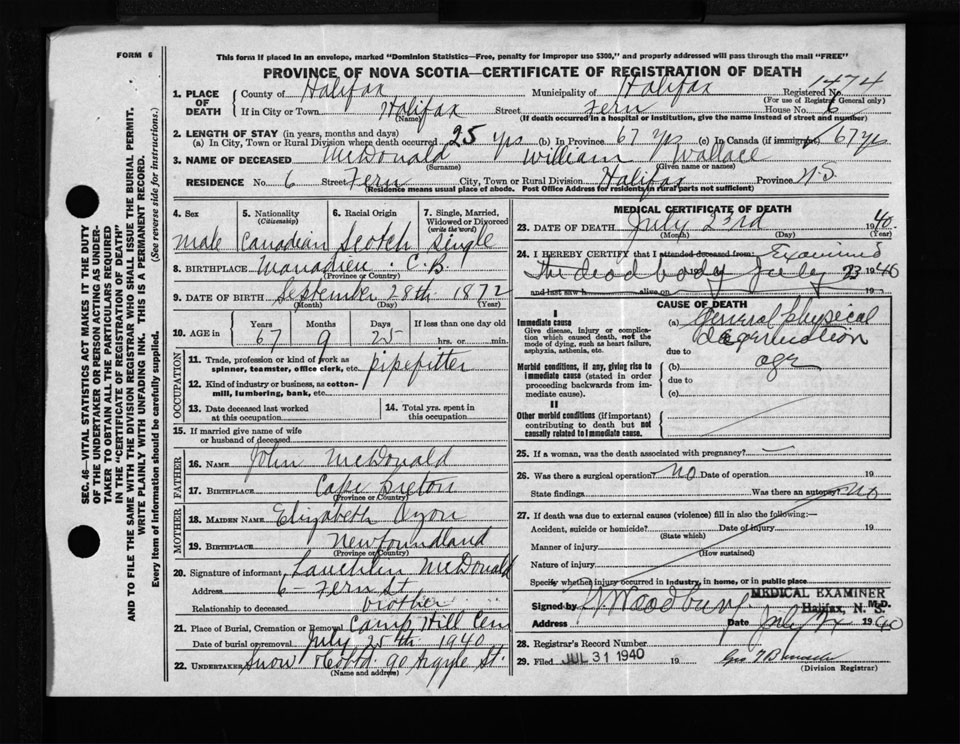 FORM 6
This form if placed in an envelope, marked "Dominion Statistics—Free, penalty for improper use $300," and properly addressed will pass through the mail "FREE"
PROVINCE OF NOVA SCOTIA—CERTIFICATE OF REGISTRATION OF DEATH
1. PLACE OF DEATH
County of Halifax Municipality of Halifax Registered No. 1474
(For use of Registrar General only)
If in City or Town Halifax Street Fern House No. 6
(Name) (If death occurred in a hospital or institution, give the name instead of street and number)
2. LENGTH OF STAY (in years, months and days)
(a) In City, Town or Rural Division where death occurred 25 yrs (b) In Province 67 yrs (c) In Canada (if immigrant) 67 yrs
3. NAME OF DECEASED McDonald William Wallace
(Surname) (Given name or names)
RESIDENCE No. 6 Street Fern City, Town or Rural Division Halifax Province N.S.
(Residence means usual place of abode. Post Office Address for residents in rural parts not sufficient)
4. Sex
male
5. Nationality (Citizenship)
Canadian
6. Racial Origin
Scotch
7. Single, Married, Widowed or Divorced (write the word)
Single
8. BIRTHPLACE C.B.
(Province or Country)
9. DATE OF BIRTH September 28th 1872
(Month) (Day) (Year)
10. AGE in
Years 67
Months 9
Days 25
If less than one day old
hrs. or min.
OCCUPATION
11. Trade, profession or kind of work as spinner, teamster, office clerk, etc. pipefitter
12. Kind of industry or business, as cotton-mill, lumbering, bank, etc.
13. Date deceased last worked at this occupation
14. Total yrs. spent in this occupation
15. If married give name of wife or husband of deceased
FATHER
16. NAME John McDonald
17. BIRTHPLACE Cape Breton
(Province or Country)
MOTHER
18. MAIDEN NAME Elizabeth
19. BIRTHPLACE Newfoundland
(Province or Country)
20. Signature of informant Lauchlin McDonald
Address 6 – Fern St
Relationship to deceased brother
21. Place of Burial, Cremation or Removal Camp Hill Cem
Date of burial or removal July 25th 1940
22. UNDERTAKER Snow & Co Ltd. 90 Argyle St.
(Name and address)
MEDICAL CERTIFICATE OF DEATH
23. DATE OF DEATH July 23rd 1940
(Month) (Day) (Year)
24. I HEREBY CERTIFY that I attended deceased from: Examined
The dead body July 23 1940
and last saw h alive on 19
CAUSE OF DEATH
I
Immediate cause
Give disease, injury or complication which caused death, not the mode of dying, such as heart failure, asphyxia, asthenia, etc.
(a) General physical
due to
Morbid conditions, if any, giving rise to immediate cause (stated in order proceeding backwards from immediate cause).
(b) age
due to
(c)
II
Other morbid conditions (if important) contributing to death but not causally related to immediate cause.
25. If a woman, was the death associated with pregnancy? —
26. Was there a surgical operation? No Date of operation 19
State findings Was there an autopsy? No
27. If death was due to external causes (violence) fill in also the following:—
Accident, suicide or homicide? Date of injury 19
(State which)
Manner of injury
(How sustained)
Nature of injury
Specify whether injury occurred in industry, in home, or in public place
MEDICAL EXAMINER
Signed by Woodbury M.D.
Halifax, N. S.
Address Date July 24 1940
28. Registrar's Record Number
29. Filed JUL 31 1940 19
(Division Registrar)
SEC. 46—VITAL STATISTICS ACT MAKES IT THE DUTY
OF THE UNDERTAKER OR PERSON ACTING AS UNDER-
TAKER TO OBTAIN ALL THE PARTICULARS REQUIRED
IN THE "CERTIFICATE OF REGISTRATION OF DEATH"
AND TO FILE THE SAME WITH THE DIVISION REGISTRAR WHO SHALL ISSUE THE BURIAL PERMIT.
WRITE PLAINLY WITH UNFADING INK. THIS IS A PERMANENT RECORD.
Every item of information should be carefully supplied. (See reverse side for instructions.)